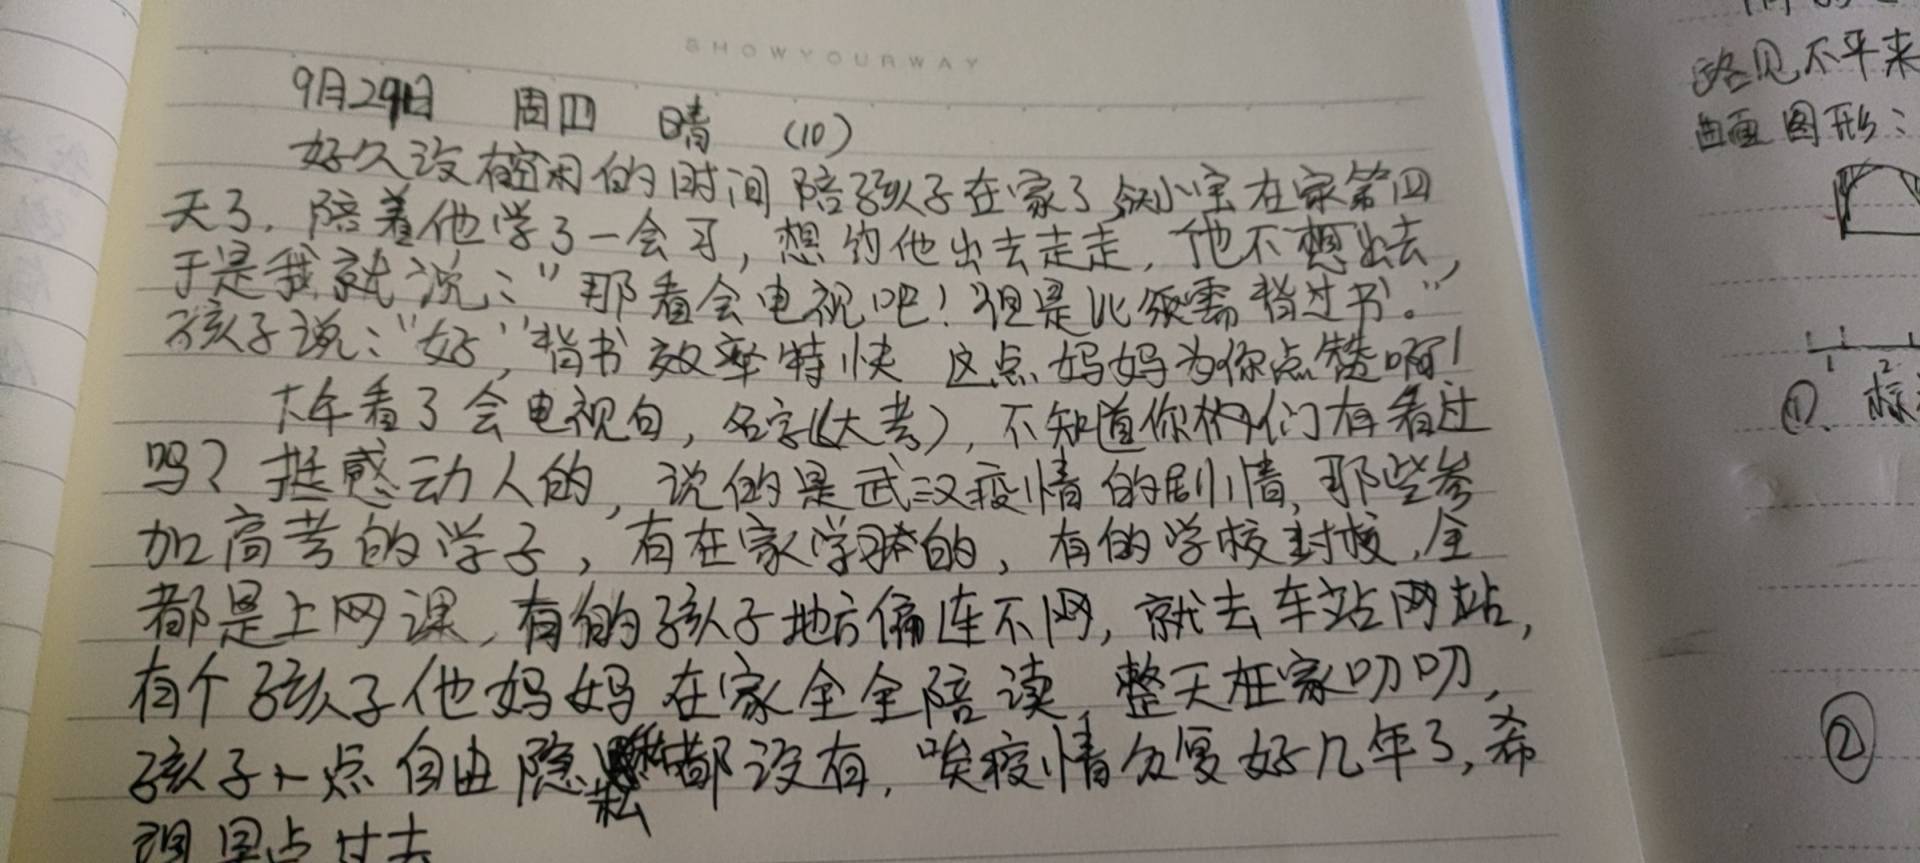 SHOWYOURWAY
9月29日 周四 晴 (10)
好久没有空闲的时间陪孩子在家了 小宝在家第四
天了，陪着他学了一会习，想约他出去走走，他不想出去，
于是我就说："那看会电视吧！但是必须需背过书。"
孩子说："好，"背书效率特快 这点妈妈为你点赞啊！
下午看了会电视自，名字(大考)，不知道你们有看过
吗？挺感动人的，说的是武汉疫情的剧情，那些参
加高考的学子，有在家学的，有的学校封校，全
都是上网课，有的孩子地方偏连不网，就去车站网站，
有个孩子他妈妈在家全全陪读，整天在家叨叨，
孩子一点自由隐私都没有，唉疫情反复好几年了，希
过去
路见不平来
画图形：
1 2
①
②